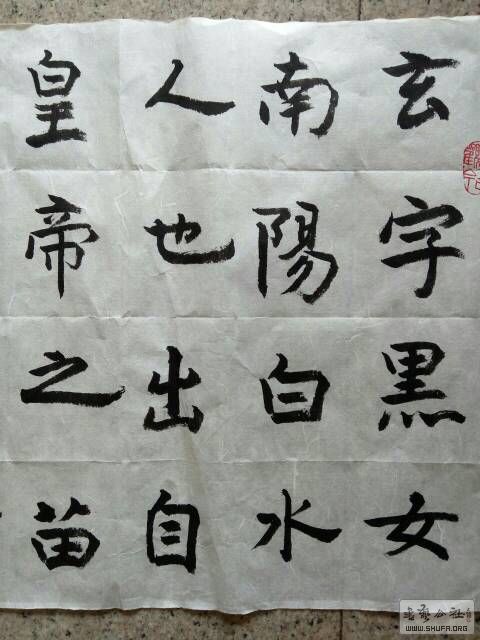 玄字黑女
南陽白水
人也出自
皇帝之苗
WWW.SHUFA.ORG